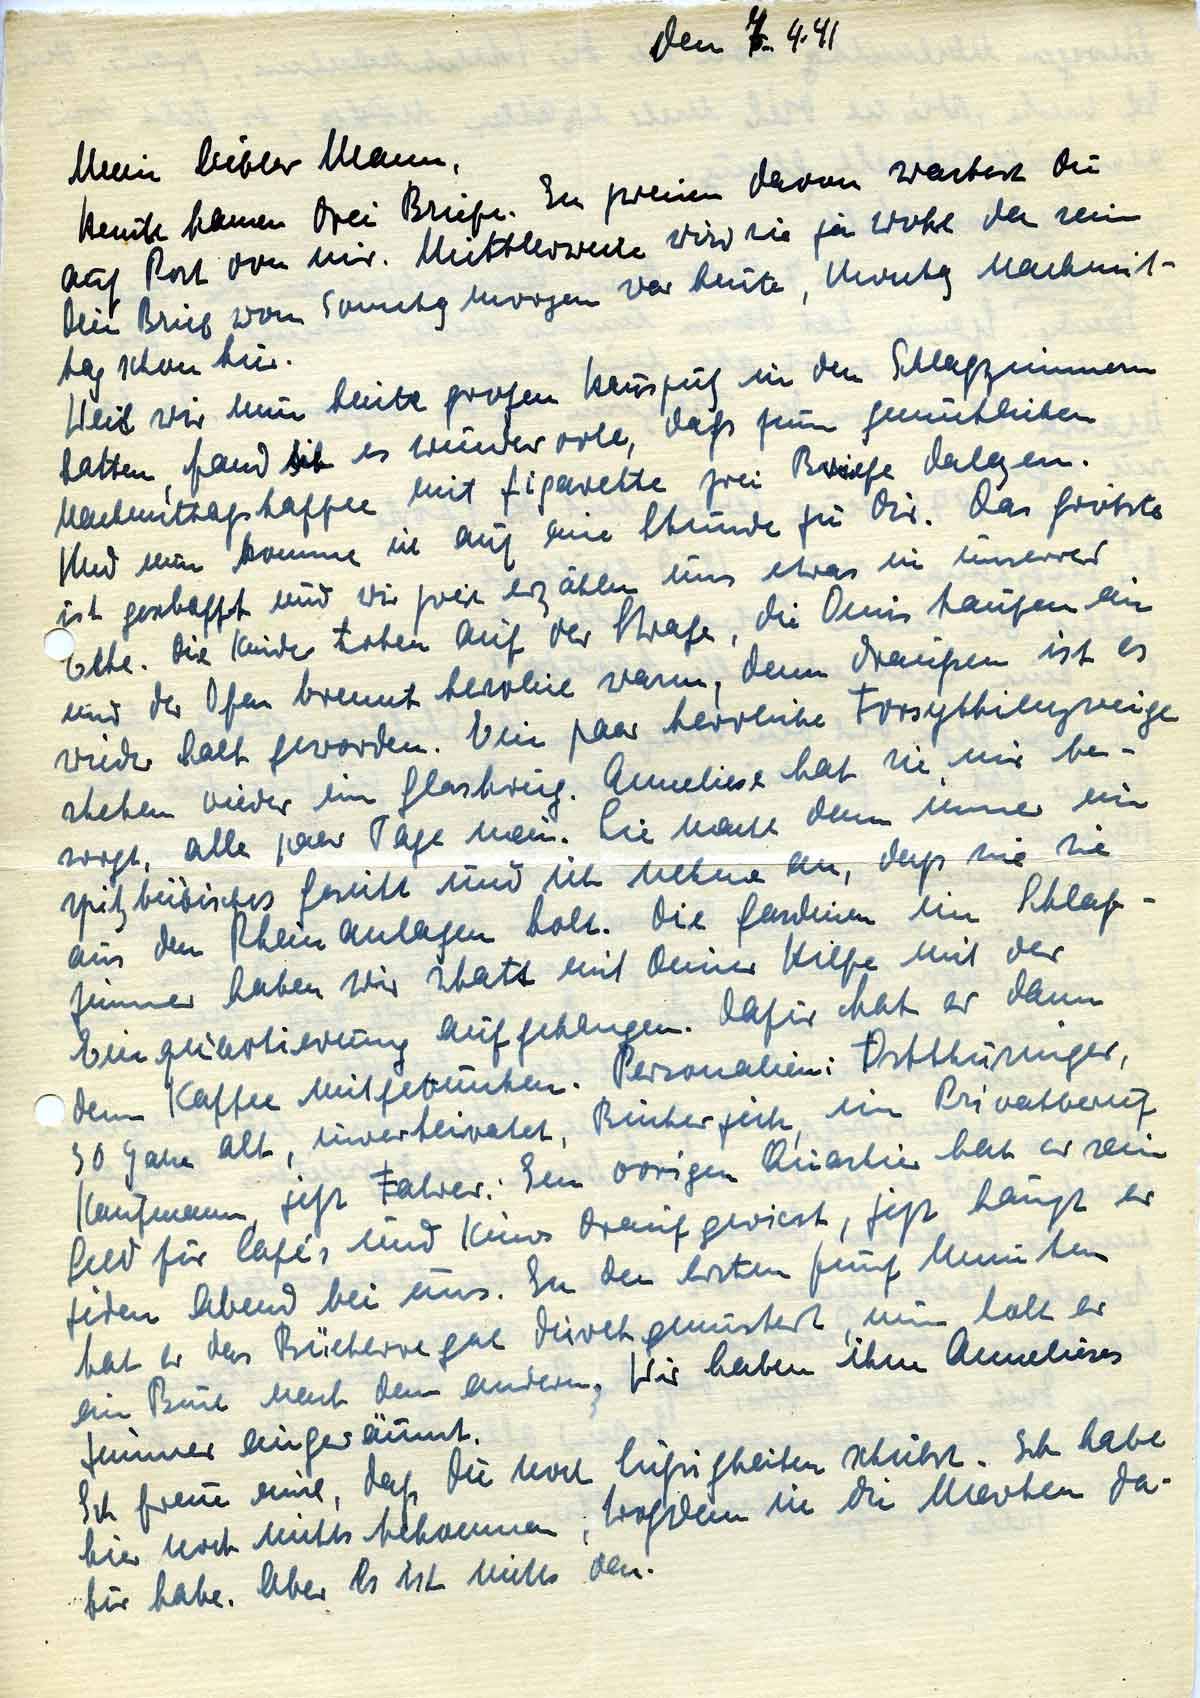 den 7. 4. 41
Mein lieber Mann,
heute kamen drei Briefe. In zweien davon wartest Du
auf Post von mir. Mittlerweile wird sie ja wohl da sein
Dein Brief vom Sonntag morgen war heute, Montag Nachmit-
tag schon hier.
Weil wir nun heute großen Hausputz in den Schlafzimmern
hatten, fand ich es wundervoll, daß zum gemütlichen
Nachmittagskaffee mit Zigarette zwei Briefe dalagen.
Und nun komme ich auf eine Stunde zu Dir. Das größte
ist geschafft und wir zwei erzählen uns etwas in unserer
Ecke. Die Kinder toben auf der Straße, die Omis kaufen ein
und der Ofen brennt herrlich warm, denn draußen ist es
wieder kalt geworden. Ein paar herrliche Forsythienzweige
stehen wieder im Glaskrug. Anneliese hat sie mir be-
sorgt, alle paar Tage neu. Sie macht dann immer ein
spitzbübisches Gesicht und ich nehme an, daß sie sie
aus den Rheinanlagen holt. Die Gardinen im Schlaf-
zimmer haben wir statt mit Deiner Hilfe mit der
Einquartierung aufgehangen. Dafür hat er dann
denn Kaffee mitgetrunken. Personalien: Ostthüringer,
30 Jahre alt, unverheiratet, im Privatberuf
Kaufmann, jetzt Fahrer. Im vorigen Quartier hat er sein
Geld für Cafés und Kinos draufgewichst, jetzt hängt er
jeden Abend bei uns. In den ersten fünf Minuten
hat er das Bücherregal durchgemustert, nun holt er
ein Buch nach dem andern. Wir haben ihm Annelieses
Zimmer eingeräumt.
Ich freue mich, daß Du noch Süßigkeiten schickst. Ich habe
hier noch nichts bekommen, trotzdem ich die Marken da-
für habe. Aber es ist nichts da.